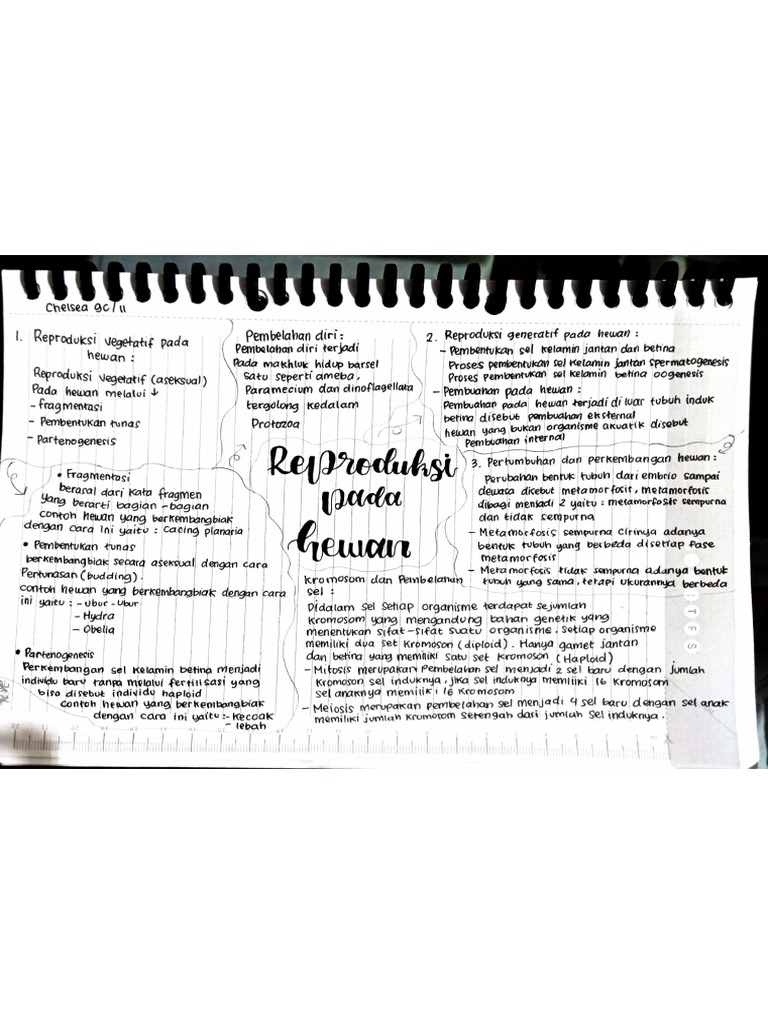 Chelsea 9C/11
1. Reproduksi vegetatif pada
hewan :
Reproduksi vegetatif (aseksual)
Pada hewan melalui ↓
- fragmentasi
- Pembentukan tunas
- Partenogenesis
Pembelahan diri :
Pembelahan diri terjadi
Pada makhluk hidup barsel
satu seperti ameba,
Paramecium dan dinoflagellata
tergolong kedalam
Protozoa
2. Reproduksi generatif pada hewan :
- Pembentukan sel kelamin jantan dan betina
Proses pembentukan sel kelamin jantan spermatogenesis
Proses pembentukan sel kelamin betina oogenesis
- Pembuahan pada hewan :
Pembuahan pada hewan terjadi di luar tubuh induk
betina disebut pembuahan eksternal
hewan yang bukan organisme akuatik disebut
Pembuahan internal
Reproduksi
pada
hewan
3. Pertumbuhan dan perkembangan hewan :
Perubahan bentuk tubuh dari embrio sampai
dewasa disebut metamorfosit, metamorfosis
dibagi menjadi 2 yaitu : metamorfosis sempurna
dan tidak sempurna
- Metamorfosis sempurna cirinya adanya
bentuk tubuh yang berbeda disetiap fase
metamorfosis
- Metamorfosis tidak sempurna adanya bentuk
tubuh yang sama, tetapi ukurannya berbeda
• Fragmentasi
berasal dari kata fragmen
yang berarti bagian-bagian
contoh hewan yang berkembangbiak
dengan cara ini yaitu : cacing planaria
• Pembentukan tunas
berkembangbiak secara aseksual dengan cara
Pertunasan (budding).
contoh hewan yang berkembangbiak dengan cara
ini yaitu : - Ubur-Ubur
- Hydra
- Obelia
• Partenogenesis
Perkembangan sel kelamin betina menjadi
individu baru tanpa melalui fertilisasi yang
bisa disebut individu haploid
contoh hewan yang berkembangbiak
dengan cara ini yaitu :- kecoak
- lebah
Kromosom dan Pembelahan
sel :
Didalam sel setiap organisme terdapat sejumlah
Kromosom yang mengandung bahan genetik yang
menentukan sifat-sifat suatu organisme. Setiap organisme
memiliki dua set Kromosom (diploid). Hanya gamet jantan
dan betina yang memiliki satu set Kromoson (Haploid)
- Mitosis merupakan Pembelahan sel menjadi 2 sel baru dengan jumlah
Kromoson sel induknya, jika sel induknya memiliki 16 Kromosom
sel anaknya memiliki 16 Kromosom
- Meiosis merupakan pembelahan sel menjadi 4 sel baru dengan sel anak
memiliki jumlah Kromosom setengah dari jumlah sel induknya.